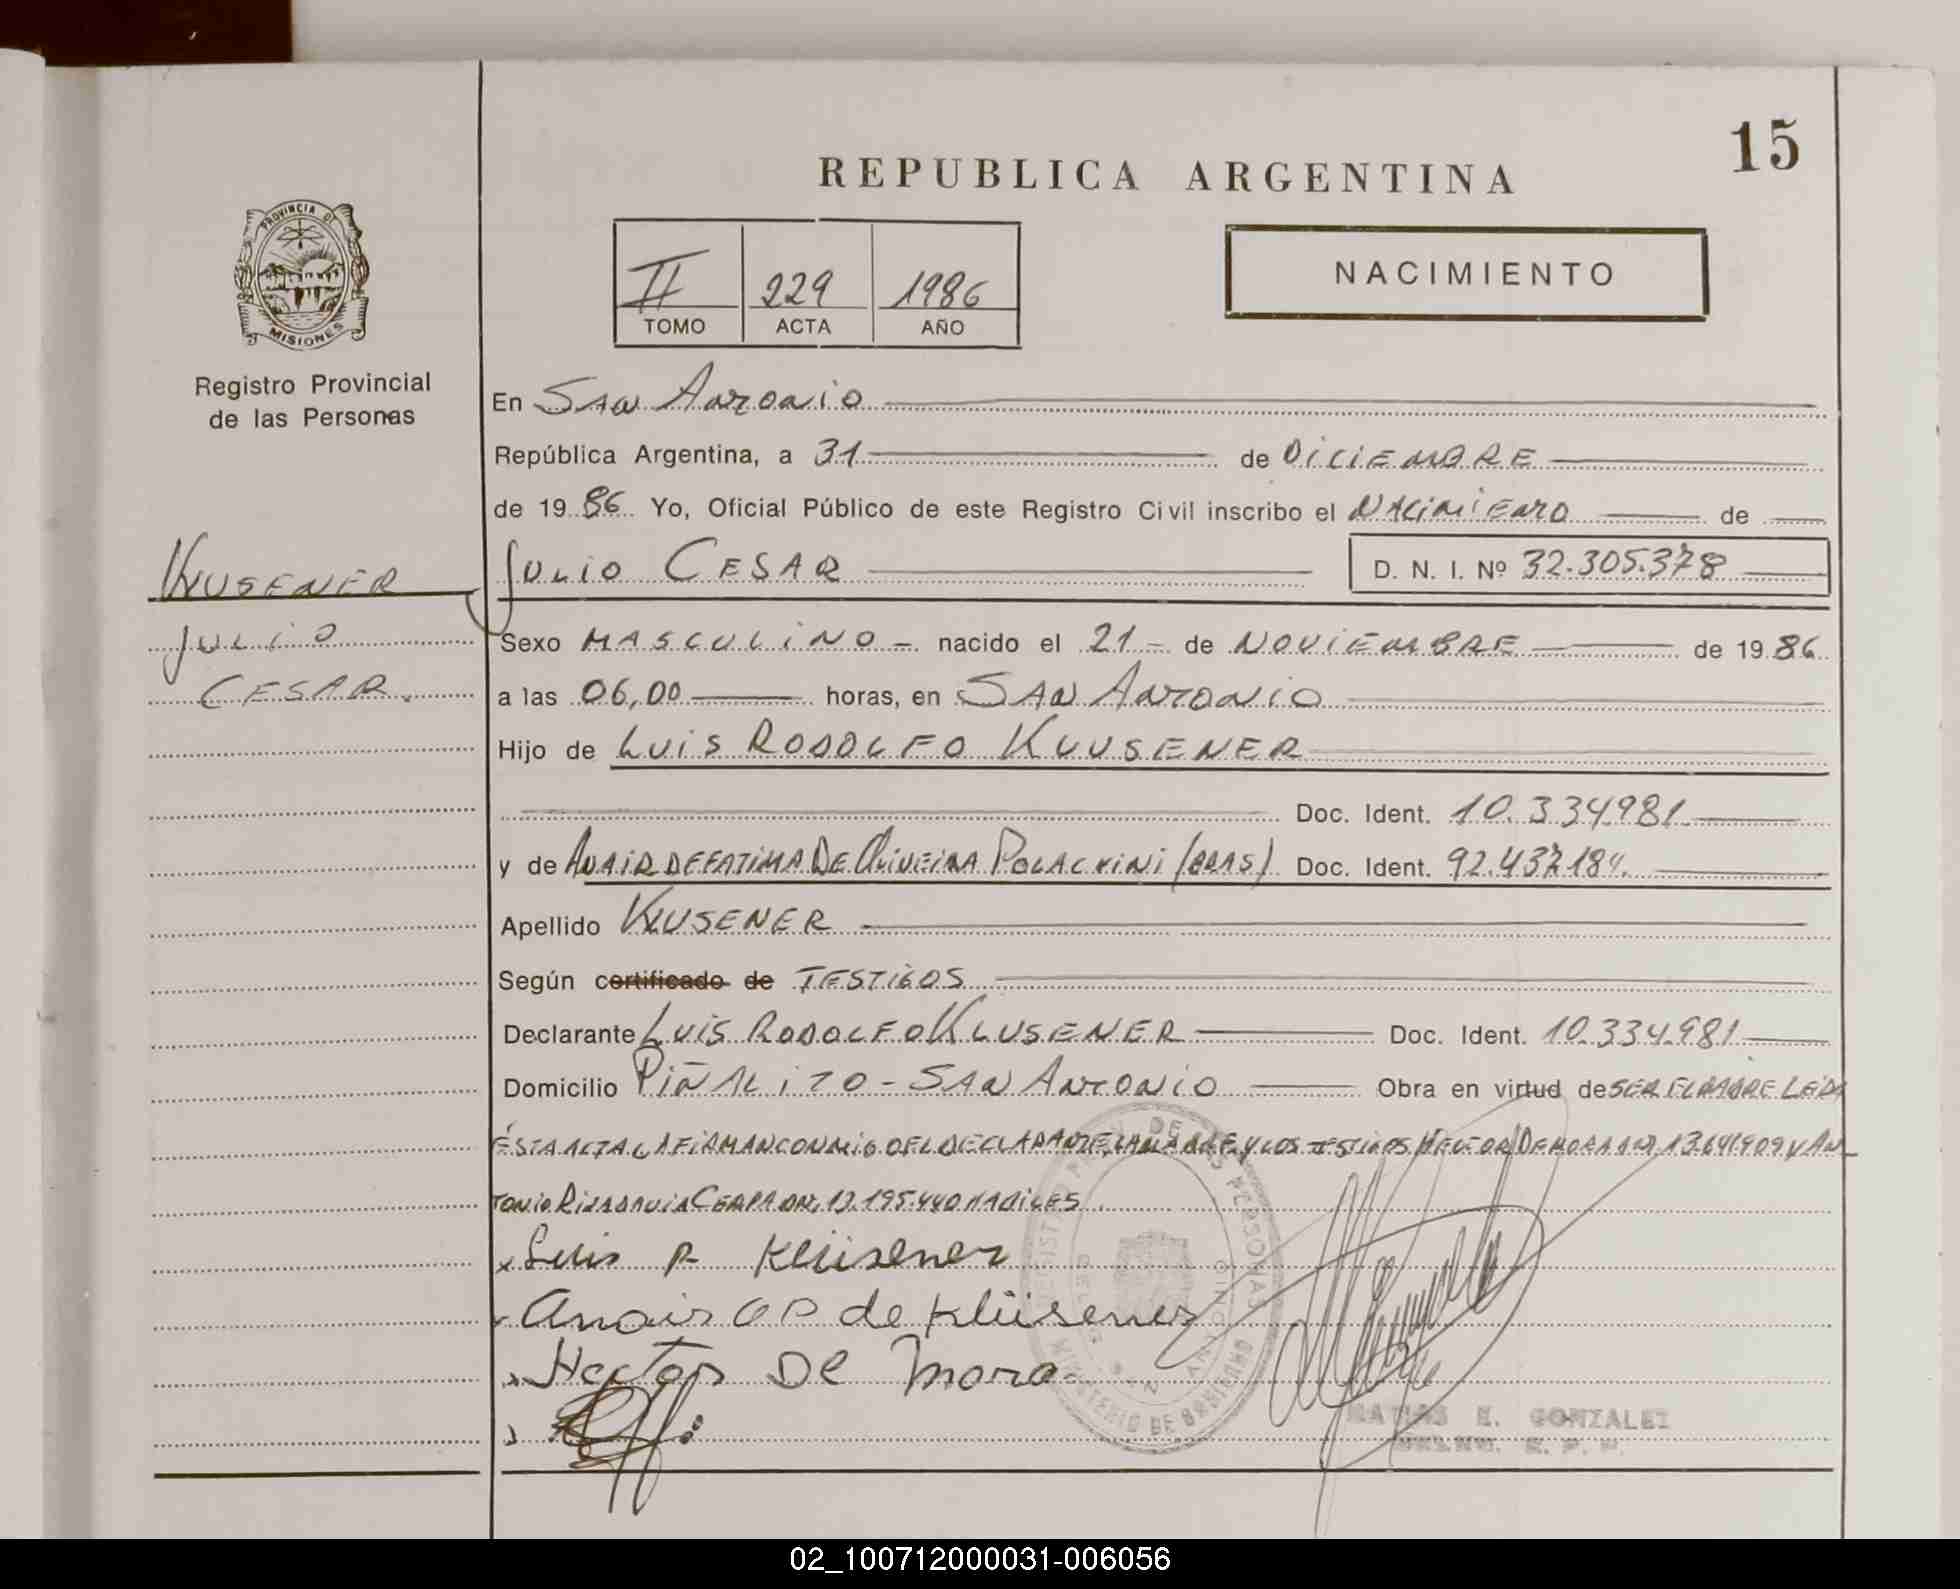 15
REPUBLICA ARGENTINA
PROVINCIA DE
MISIONES
II 229 1986
TOMO ACTA AÑO
NACIMIENTO
Registro Provincial
de las Personas
En San Antonio
República Argentina, a 31 de DiCiEMBRE
de 19 86 Yo, Oficial Público de este Registro Civil inscribo el NACiMiENTO de
KLUSENER
JULIO
CESAR.
JULIO CESAR D. N. I. Nº 32.305.378
Sexo MASCULiNO - nacido el 21 - de NOViEMBRE de 19 86
a las 06,00 horas, en SAN ANTONiO
Hijo de LUiS RODOLFO KLUSENER
Doc. Ident. 10.334981
y de ANAIR DE FATIMA DE OLiVEiRA POLACKINI (BRAS) Doc. Ident. 92.437.184.
Apellido KLUSENER
Según certificado de TESTiGOS
Declarante LUiS RODOLFO KLUSENER Doc. Ident. 10.334.981
Domicilio PiÑALiTO - SAN ANTONiO Obra en virtud de SER EL PADRE LEiDA
ESTA ACTA LA FiRMAN CONMiGO DEL DECLARANTE, LA MADRE Y LOS TESTiGOS HECTOR DE MORA 13.641.909 Y AN-
TONiO 12.195.440 HABiLES
x Luis R Klüsener
Anair O P de Klüsener
Hector De Mora
MINISTERIO DE GOBIERNO
REGISTRO DE LAS PERSONAS
MATIAS E. GONZALEZ
02_100712000031-006056